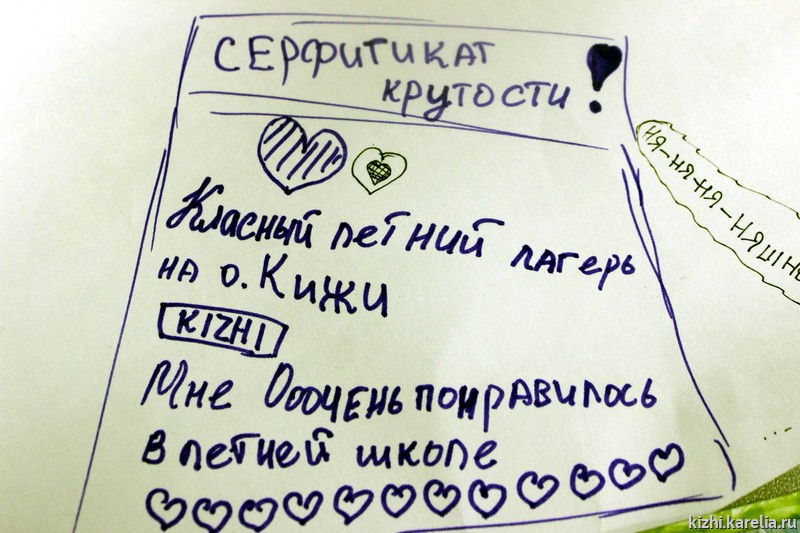 СЕРФИТИКАТ
КРУТОСТИ!
Класный летний лагерь
на о. Кижи
KIZHI
Мне Оооочень понравилось
в летней школе
НЯ-НЯ-НЯ-НЯШН
kizhi.karelia.ru